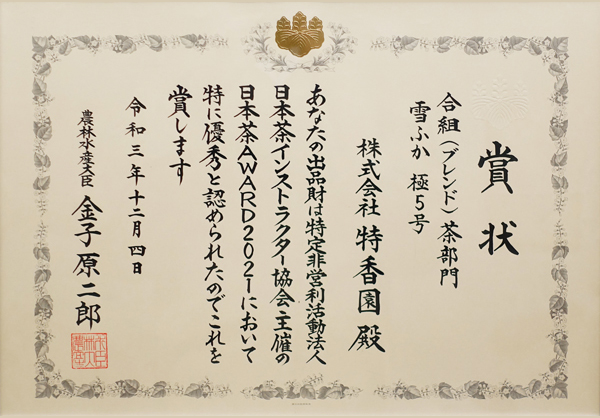 賞状
合組(ブレンド)茶部門
雪ふか 極5号
株式会社 特香園 殿
あなたの出品財は特定非営利活動法人
日本茶インストラクター協会主催の
日本茶AWARD2021において
特に優秀と認められたのでこれを
賞します
令和三年十二月四日
農林水産大臣 金子原二郎